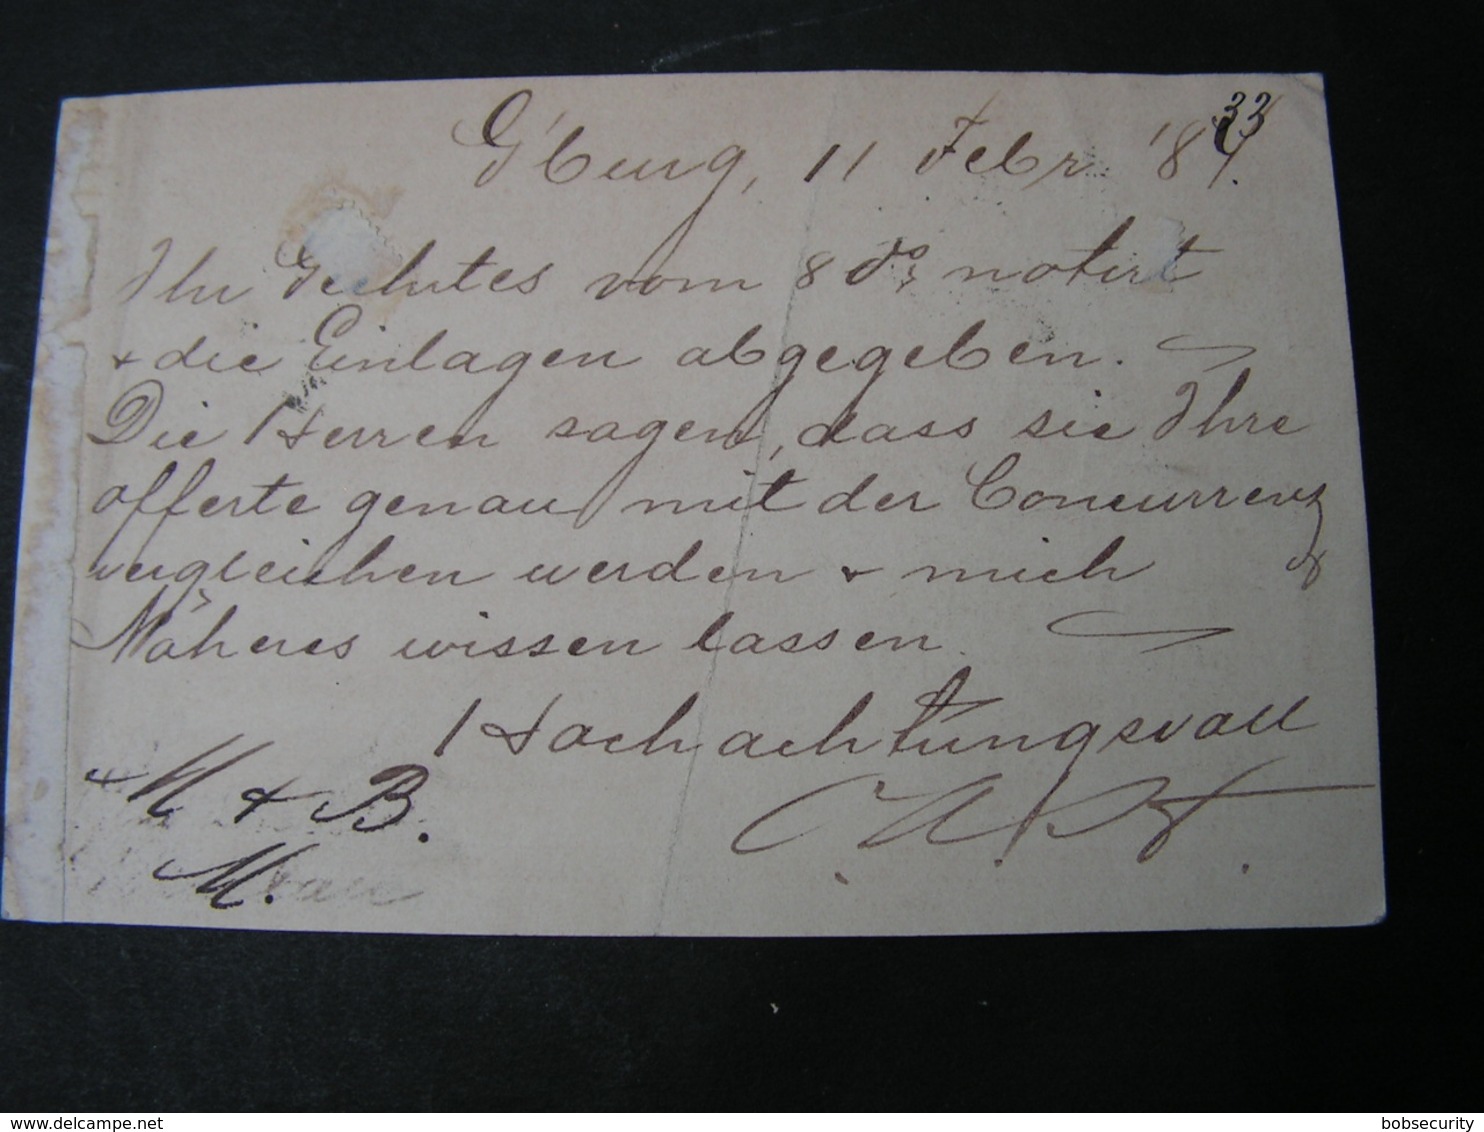 33
G'burg, 11 Febr. '87.
Ihr Geehrtes vom 8 do notirt
+ die Einlagen abgegeben.
Die Herren sagen, dass sie Ihre
offerte genau mit der Concurrenz
vergleichen werden + mich
Näheres wissen lassen.
Hochachtungsvoll
M + B.
M.
delcampe.net
bobsecurity